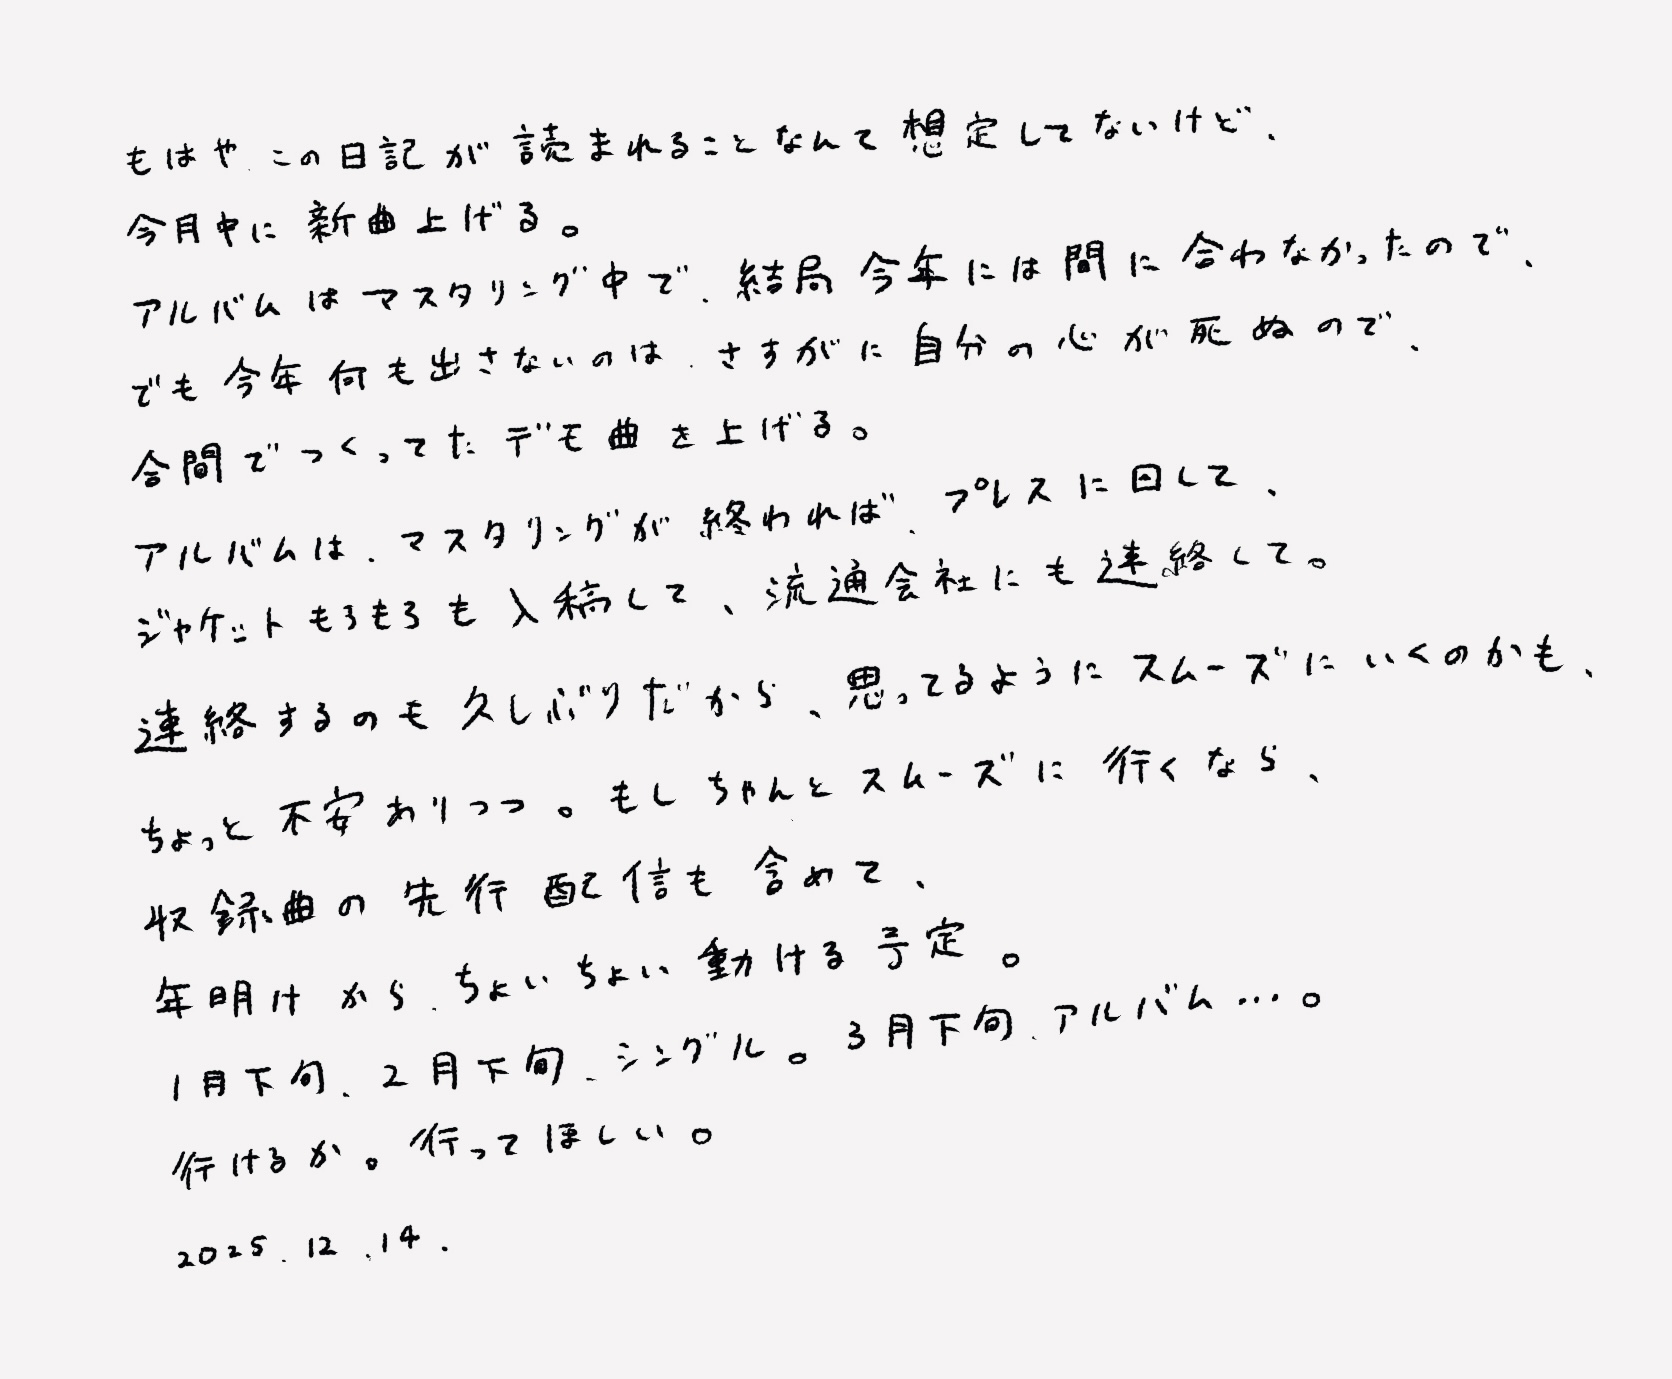 もはや、この日記が読まれることなんて想定してないけど、
今月中に新曲上げる。
アルバムはマスタリング中で、結局今年には間に合わなかったので、
でも今年何も出さないのは、さすがに自分の心が死ぬので、
合間でつくってたデモ曲を上げる。
アルバムは、マスタリングが終われば、プレスに回して、
ジャケットもろもろも入稿して、流通会社にも連絡して。
連絡するのも久しぶりだから、思ってるようにスムーズにいくのかも、
ちょっと不安ありつつ。もしちゃんとスムーズに行くなら、
収録曲の先行配信も含めて、
年明けから、ちょいちょい動ける予定。
1月下旬、2月下旬、シングル。3月下旬、アルバム…。
行けるか。行ってほしい。
2025.12.14.